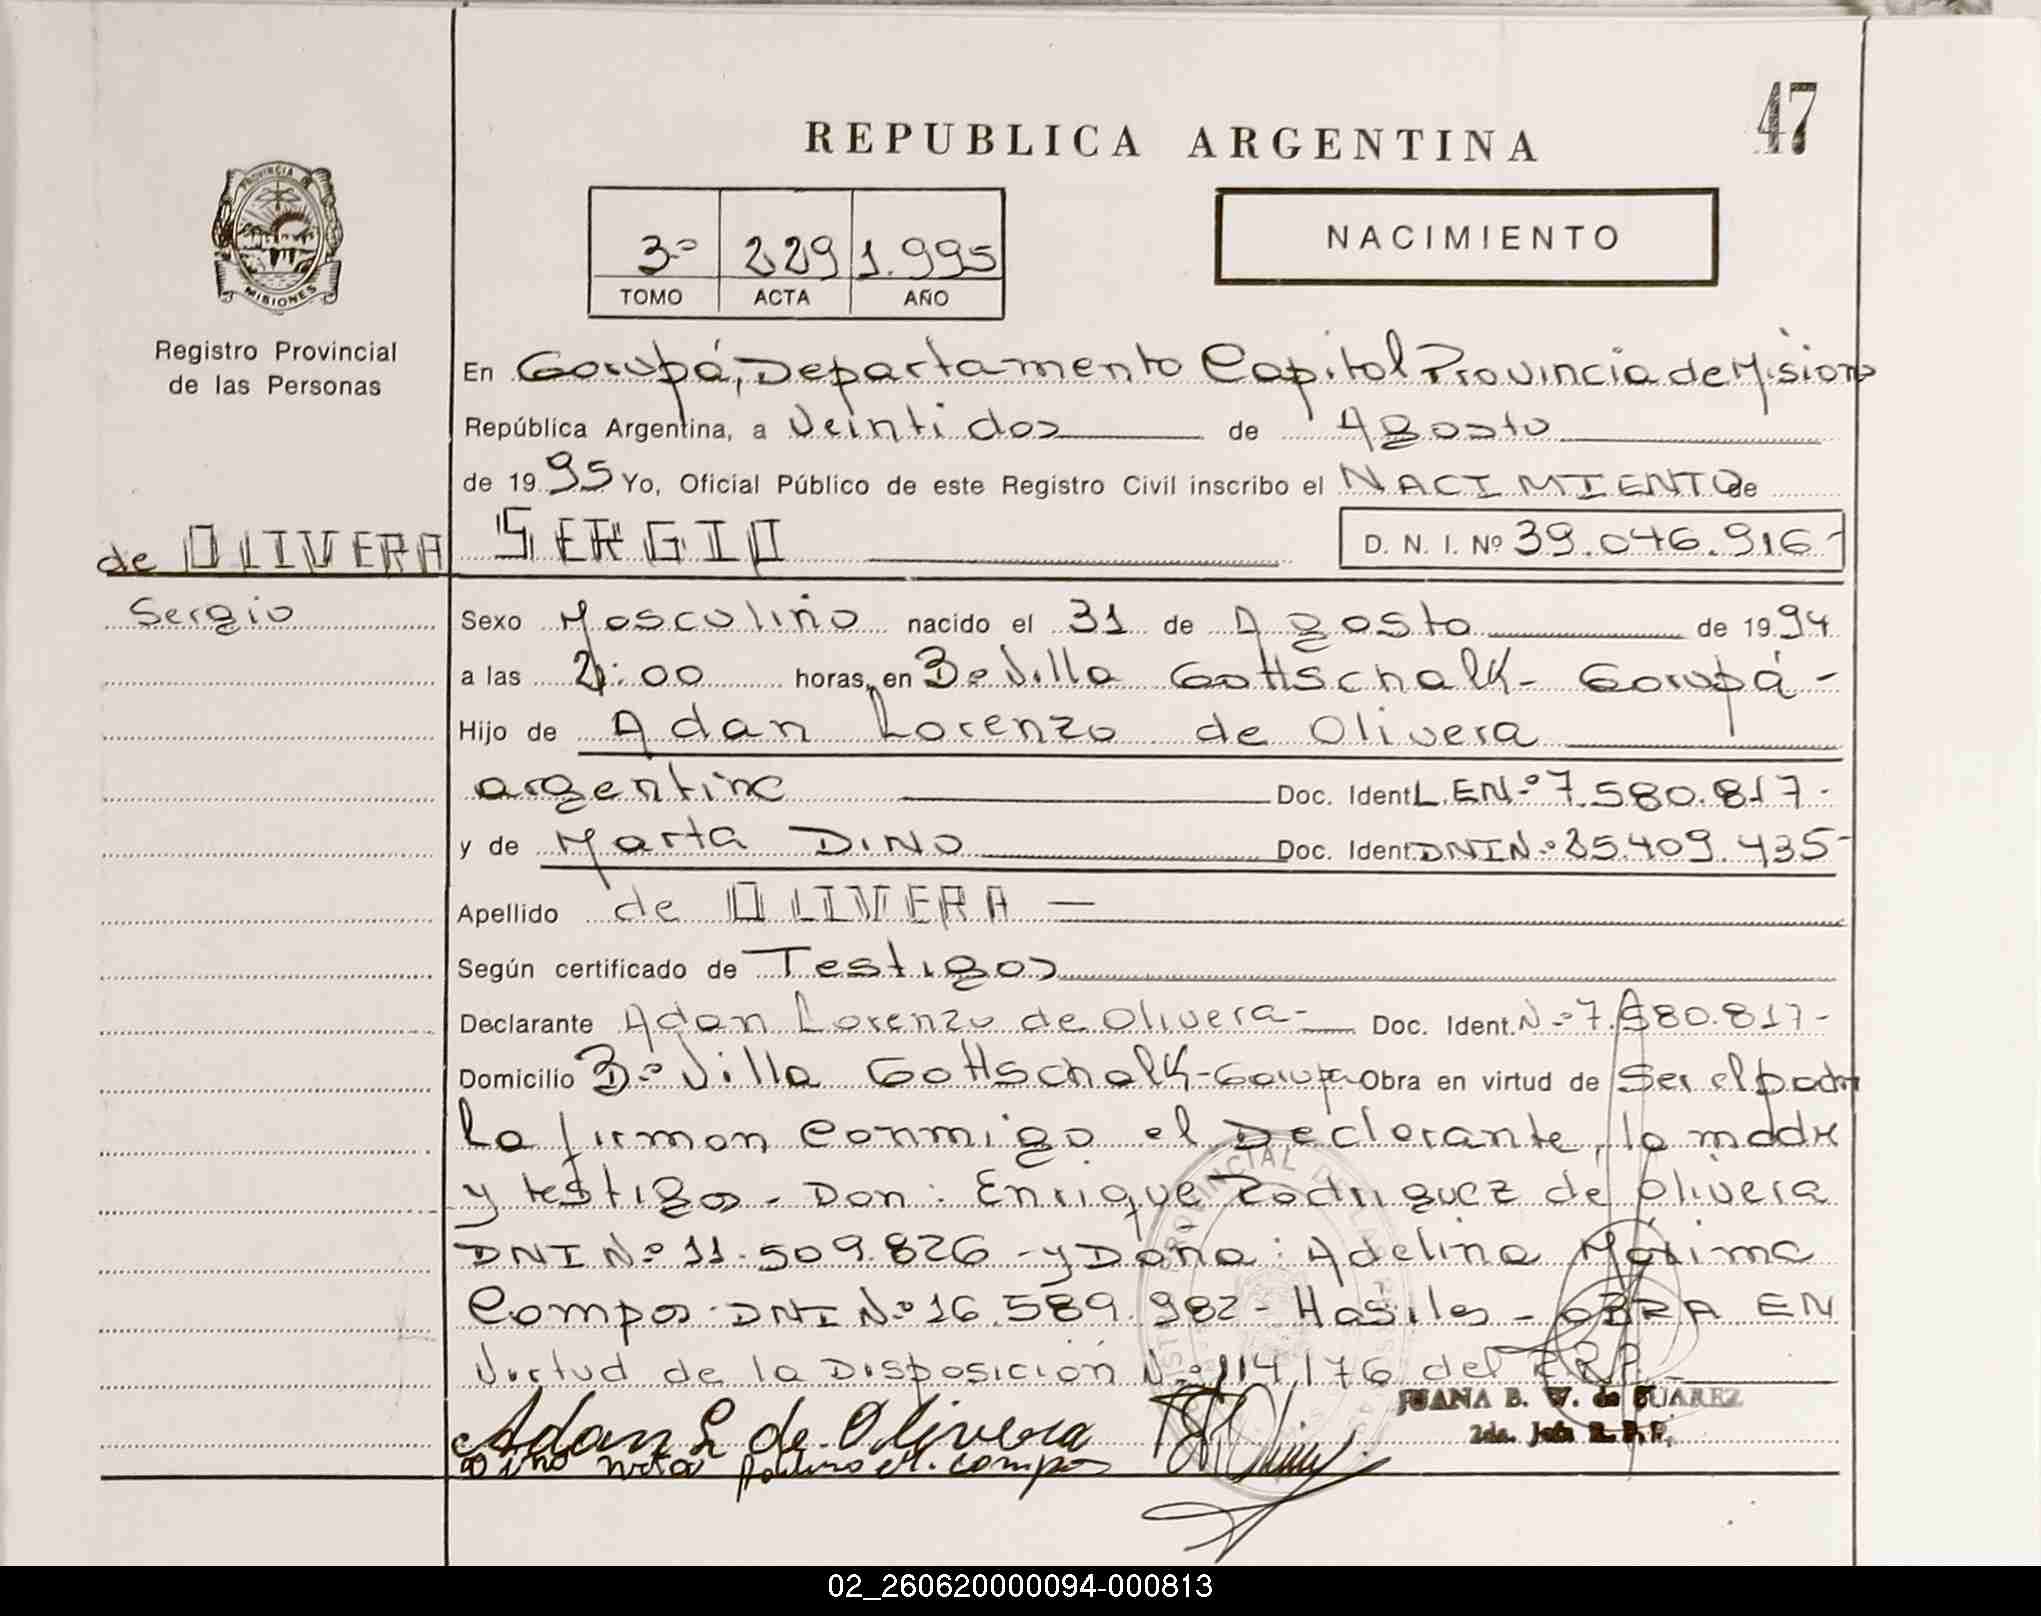 47
REPUBLICA ARGENTINA
PROVINCIA
MISIONES
Registro Provincial
de las Personas
3º 229 1.995
TOMO ACTA AÑO
NACIMIENTO
En Garupá, Departamento Capital Provincia de Mision
República Argentina, a Veintidos de Agosto
de 1995 Yo, Oficial Público de este Registro Civil inscribo el NACIMIENTO de
de OLIVERA SERGIO D. N. I. Nº 39.046.916
Sergio
Sexo Masculino nacido el 31 de Agosto de 1994
a las 21:00 horas, en Bº Villa Gottschalk - Garupá -
Hijo de Adan Lorenzo de Olivera
argentino Doc. Ident. L.E Nº 7.580.817-
y de Marta DINO Doc. Ident. DNI Nº 25.409.435-
Apellido de OLIVERA -
Según certificado de Testigos
Declarante Adan Lorenzo de Olivera - Doc. Ident. Nº 7.580.817-
Domicilio Bº Villa Gottschalk - Garupa Obra en virtud de Ser el padre
La firman conmigo el Declarante, la madre
y testigos - Don: Enrique Rodriguez de Olivera
DNI Nº 11.509.826 - y Doña: Adelina Maxima
Campos DNI Nº 16.589.982 - Hábiles - OBRA EN
Virtud de la Disposición Nº 114/76 del R.R.P.
Adan L de Olivera
JUANA B. W. de SUAREZ
2da. Jefa R. P. P.
02_260620000094-000813